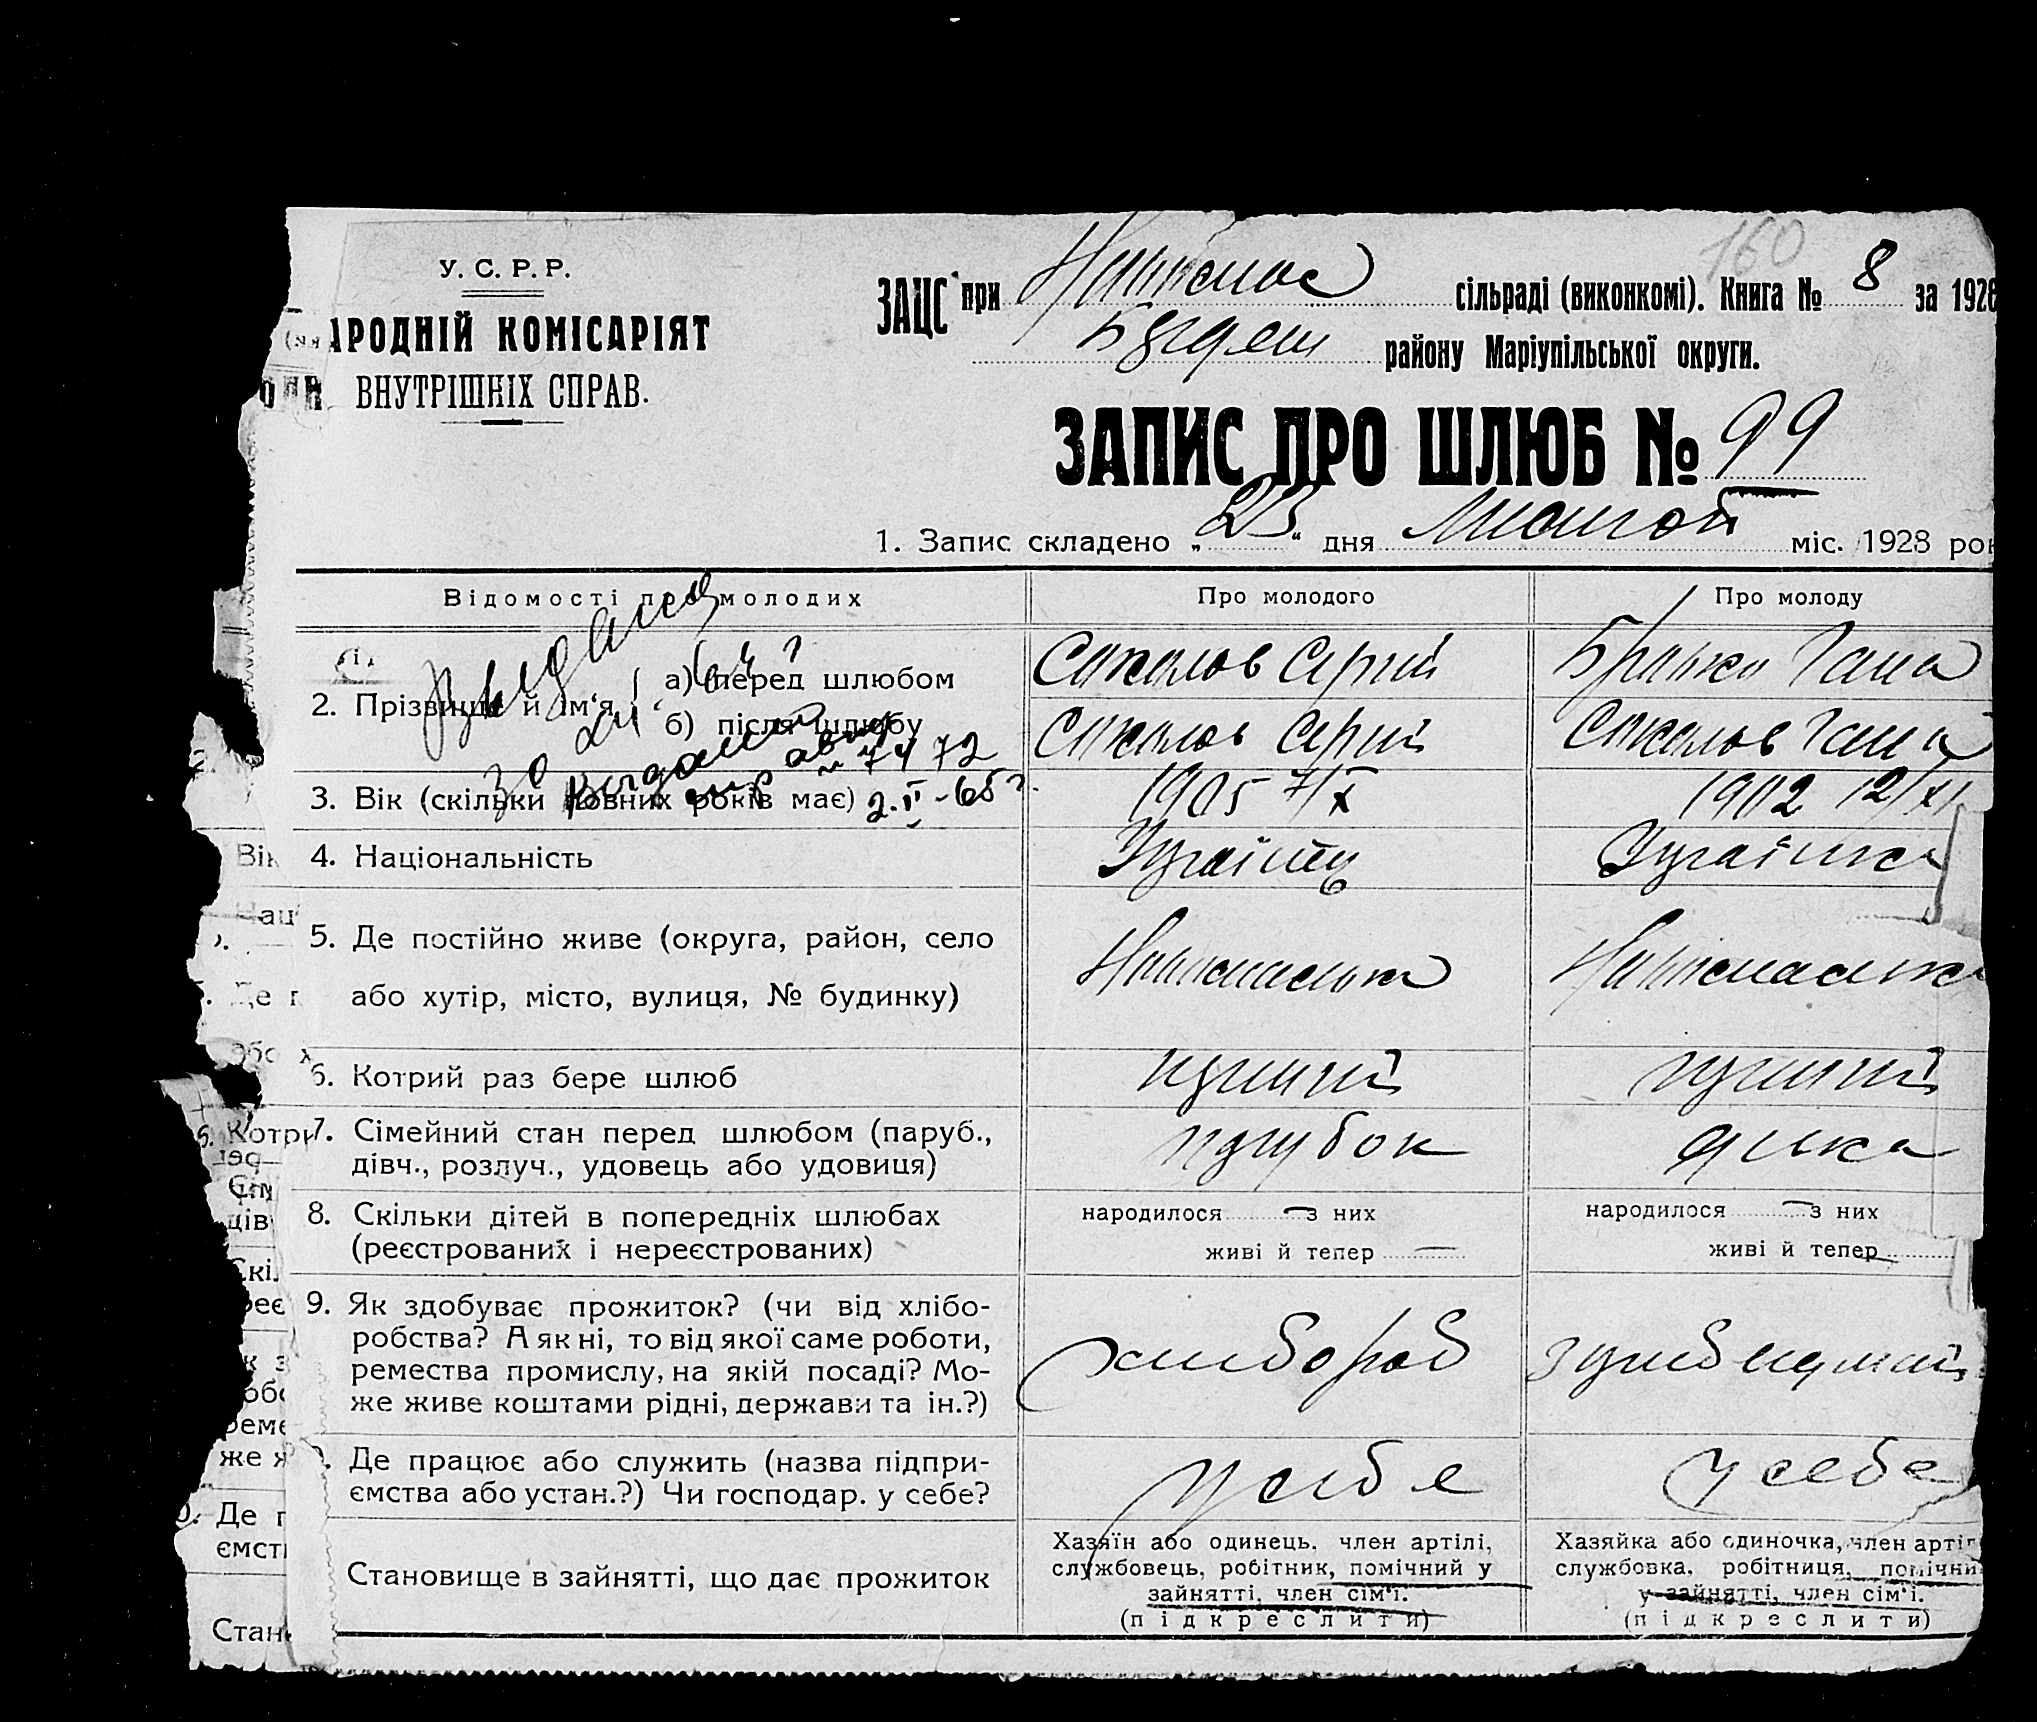 160
У. С. Р. Р.
АРОДНІЙ КОМІСАРІЯТ
ВНУТРІШНІХ СПРАВ.
ЗАЦС при сільраді (виконкомі). Книга № 8 за 1928
району Маріупільської округи.
ЗАПИС ПРО ШЛЮБ № 99
1. Запис складено „23“ дня лютого міс. 1928 рок
Відомості про молодих
Про молодого
Про молоду
2. Прізвище й ім'я
а) перед шлюбом
Соколов Сергій
Гана
б) після шлюбу
Соколов Сергій
Соколов Гана
3. Вік (скільки повних років має)
1905 7/X
1902 12/XI
№ 7472
2.II-65
4. Національність
Українець
Українка
5. Де постійно живе (округа, район, село
або хутір, місто, вулиця, № будинку)
6. Котрий раз бере шлюб
перший
перший
7. Сімейний стан перед шлюбом (паруб.,
дівч., розлуч., удовець або удовиця)
парубок
дівка
8. Скільки дітей в попередніх шлюбах
(реєстрованих і нереєстрованих)
народилося — з них
живі й тепер —
народилося — з них
живі й тепер —
9. Як здобуває прожиток? (чи від хлібо-
робства? А як ні, то від якої саме роботи,
ремества промислу, на якій посаді? Мо-
же живе коштами рідні, держави та ін.?)
хлібороб
Де працює або служить (назва підпри-
ємства або устан.?) Чи господар. у себе?
у себе
у себе
Становище в зайнятті, що дає прожиток
Хазяїн або одинець, член артілі,
службовець, робітник, помічний у
зайнятті, член сім'ї.
(підкреслити)
Хазяйка або одиночка, член артіл
службовка, робітниця, помічни
у зайнятті, член сім'ї.
(підкреслити)